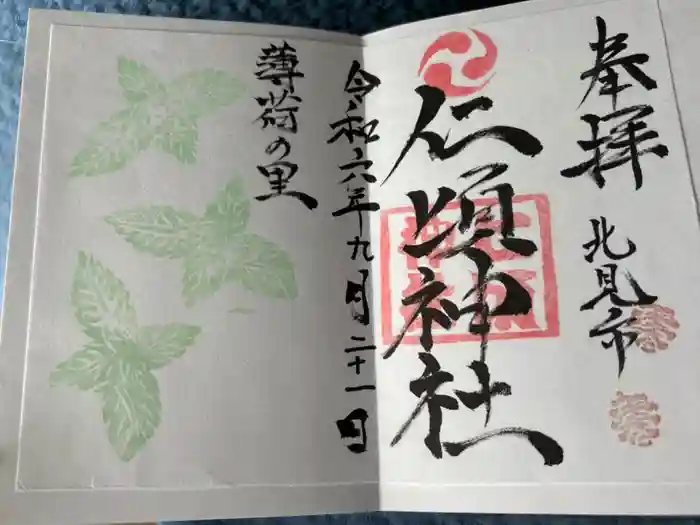 奉拝
北見市
仁頃神社
令和六年九月二十一日
薄荷の里